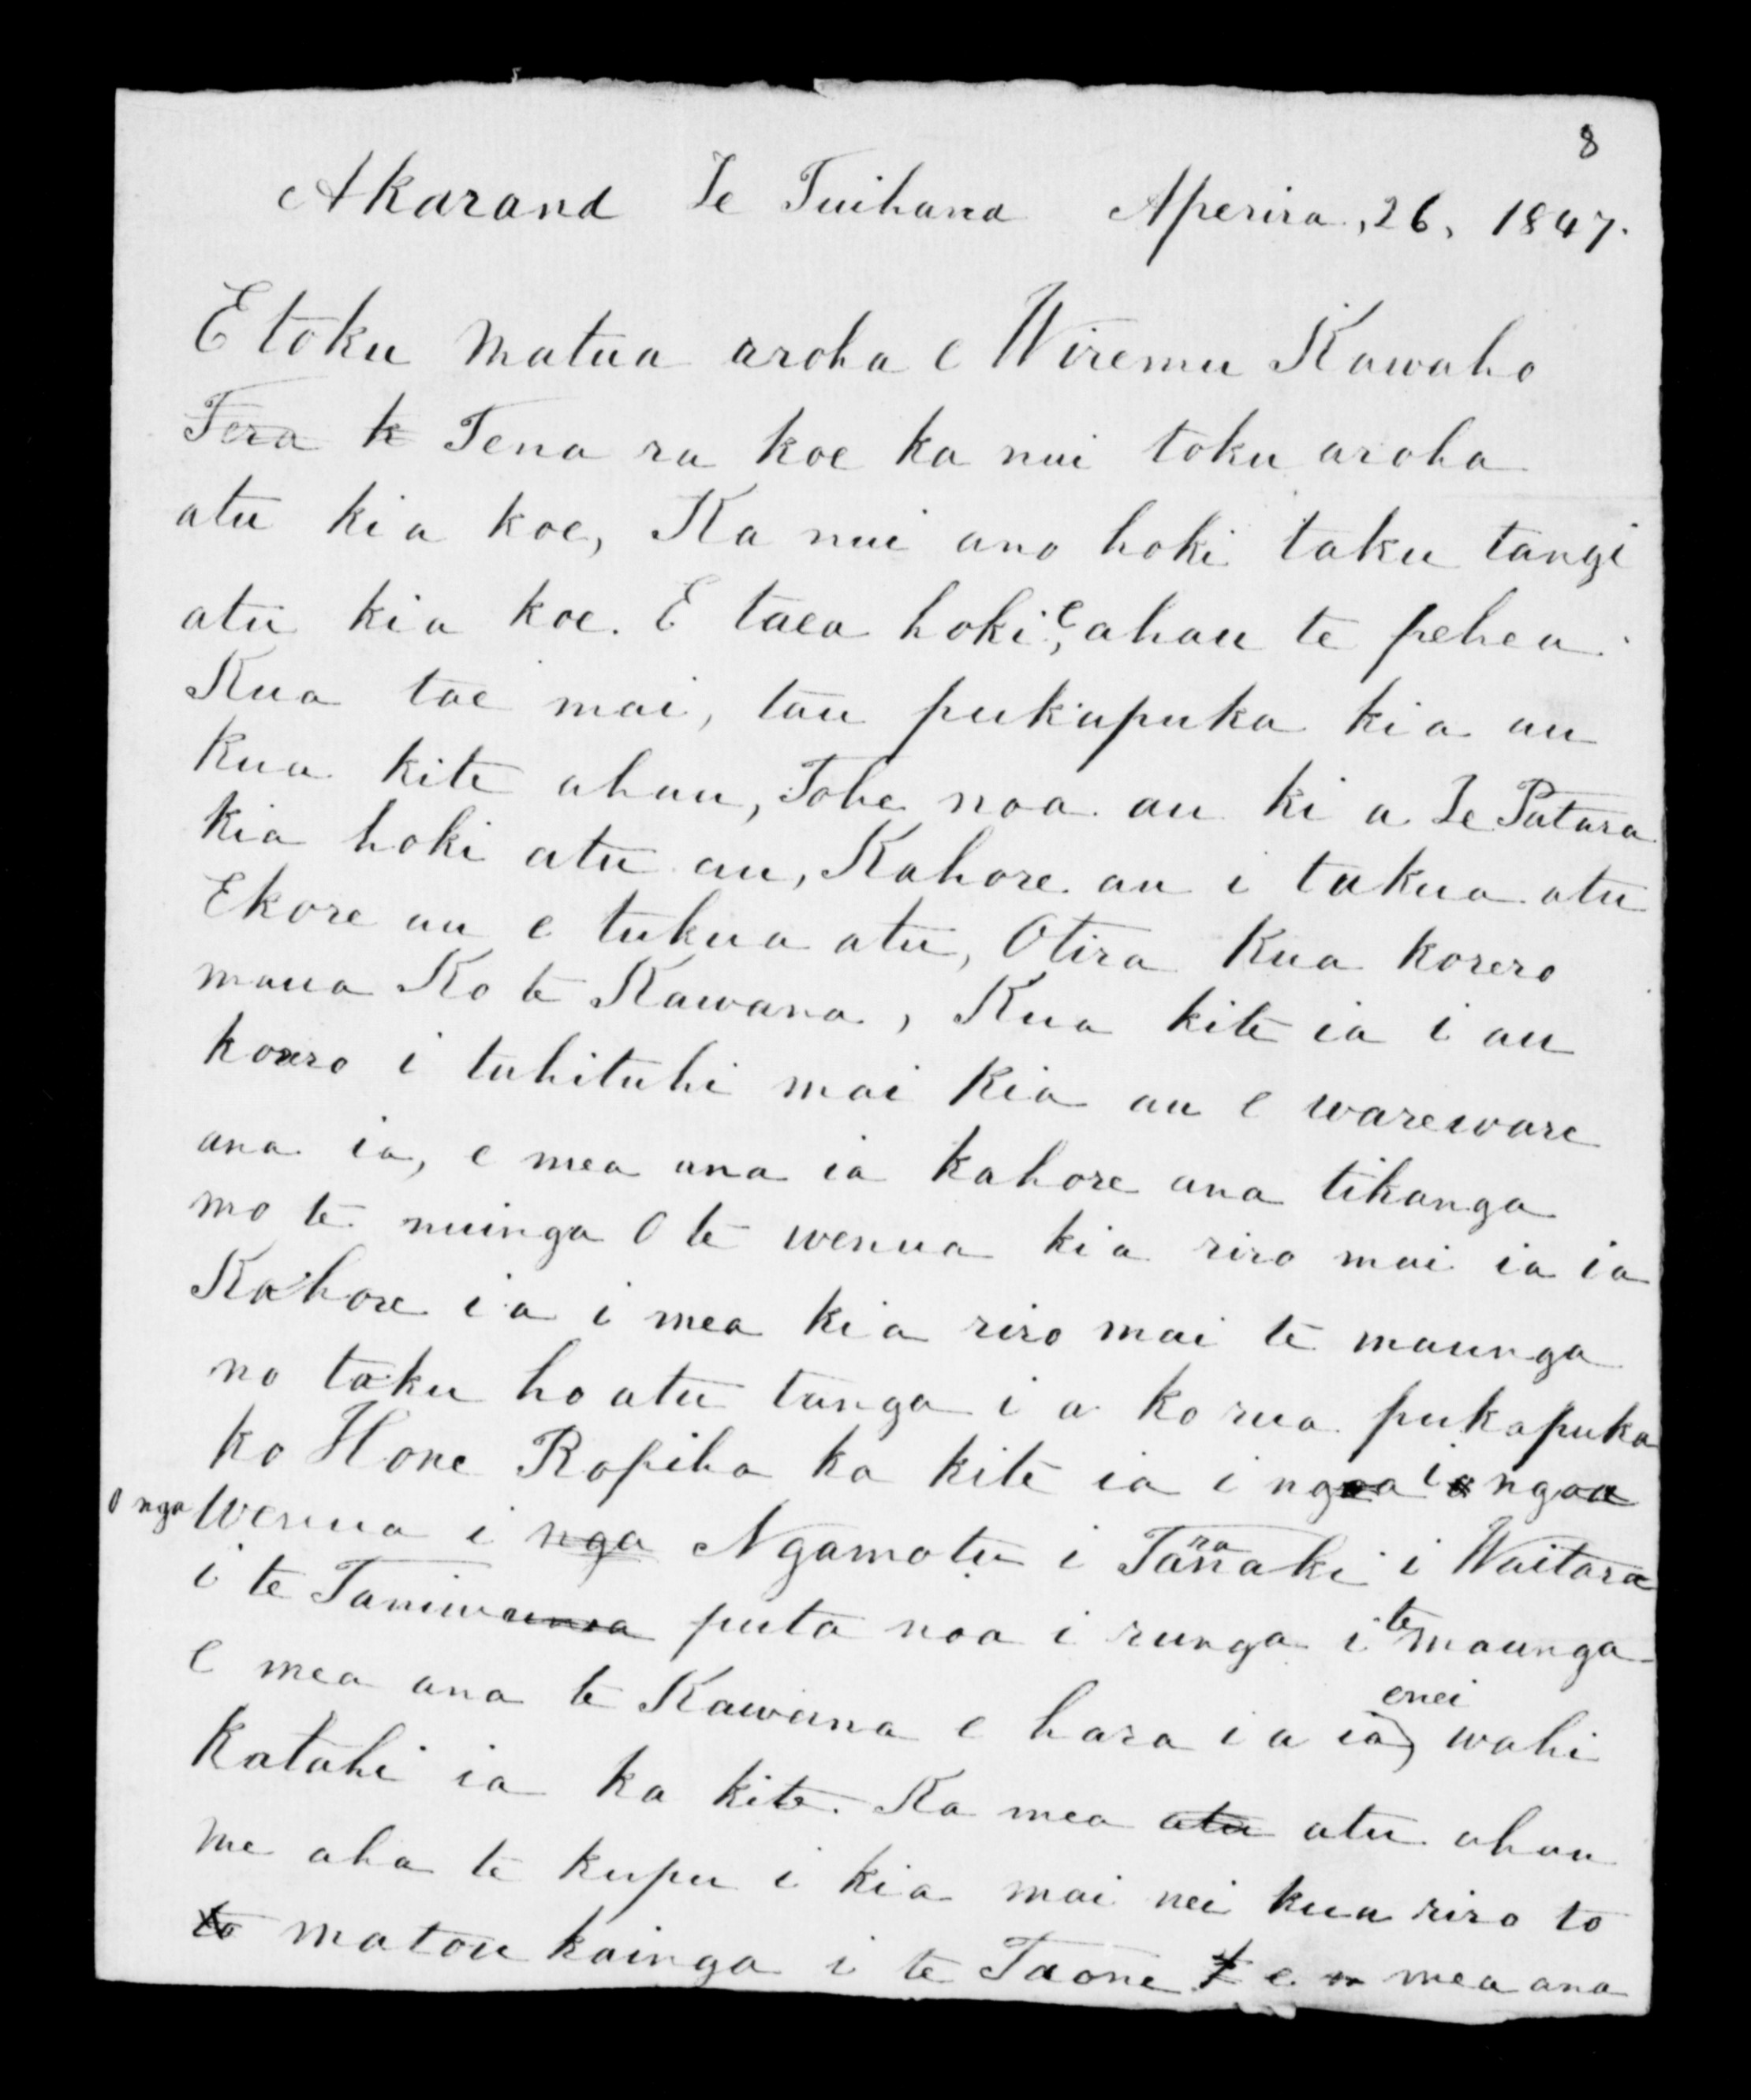 8
Akarand Te Tuihana Aperira, 26, 1847.
E toku Matua aroha e Wiremu Kawaho
Tera k Tena ra koe ka nui toku aroha
atu kia koe, Ka nui ano hoki taku tangi
atu kia koe. E taea hoki, e ahau te pehea.
Kua tae mai, tau pukapuka kia au
kua kite ahau, Tohe noa au ki a Te Patara
kia hoki atu au, Kahore au i tukua atu
Ekore au e tukua atu, Otira Kua korero
maua Ko te Kawana, Kua kite ia i au
korero i tuhituhi mai kia au e wareware
ana ia, e mea ana ia kahore ana tikanga
mo te nuinga O te wenua kia riro mai ia ia
Kahore ia i mea kia riro mai te maunga
no taku ho atu tanga i a korua pukapuka
ko Hone Ropiha ka kite ia i nga i nga
O nga wenua i nga Ngamotu i Taranaki i Waitara
i te Taniwa puta noa i runga i te maunga
e mea ana te Kawana e hara i a ia enei wahi
Katahi ia ka kite. Ka mea atu atu ahau
Me aha te kupu i kia mai nei kua riro to
to matou kainga i te Taone e mea ana